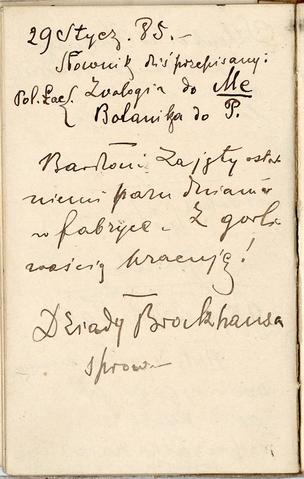 29 Stycz. 85. –
Słownik dziś przepisany:
Pol. Łac. { Zoologia do Me
Botanika do P.
Bardzom zajęty ostat
niemi paru dniami
w fabryce. Z gorli
wością pracuję!
Dziady Brockhausa
sprow–